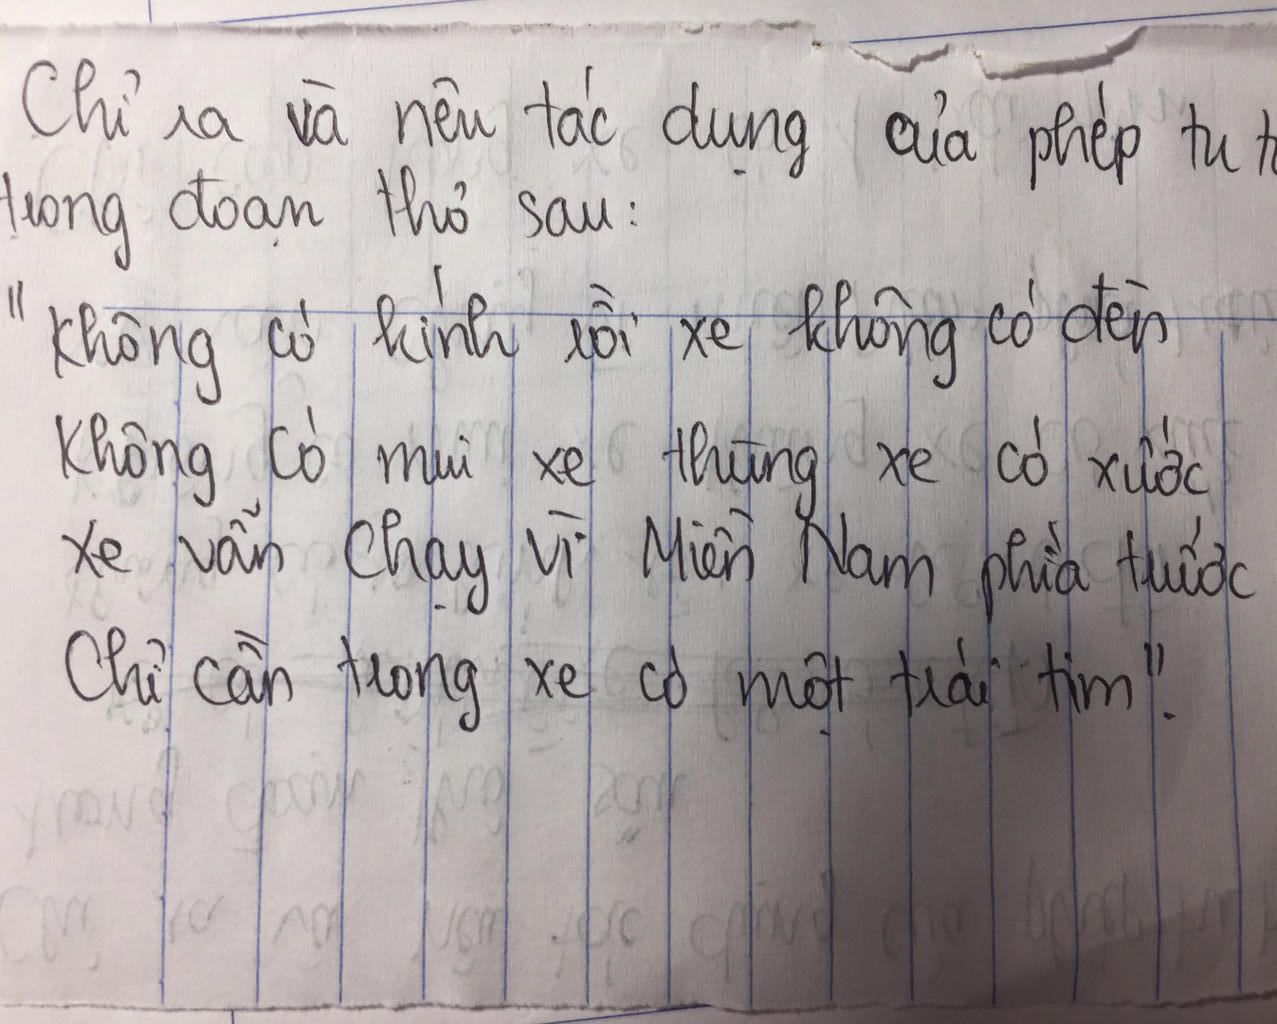 Chỉ ra và nêu tác dụng của phép tu
trong đoạn thơ sau:
"Không có kính rồi xe không có đèn
Không có mui xe thùng xe có xước
Xe vẫn chạy vì Miền Nam phía trước
Chỉ cần trong xe có một trái tim".